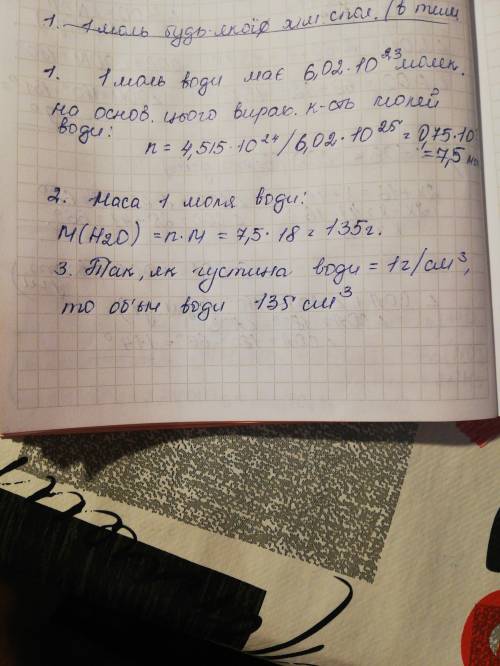 1. 1 моль будь-якої хім. спол. / в тому
1. 1 моль води має 6,02·10²³ молек.
на основ. цього вирах. к-сть молей
води:
n = 4,515·10²⁴ / 6,02·10²⁵ = 0,75·10
= 7,5
2. Маса 1 моля води:
M(H2O) = n·M = 7,5·18 = 135г.
3. Так, як густина води = 1г/см³,
то об'єм води 135 см³